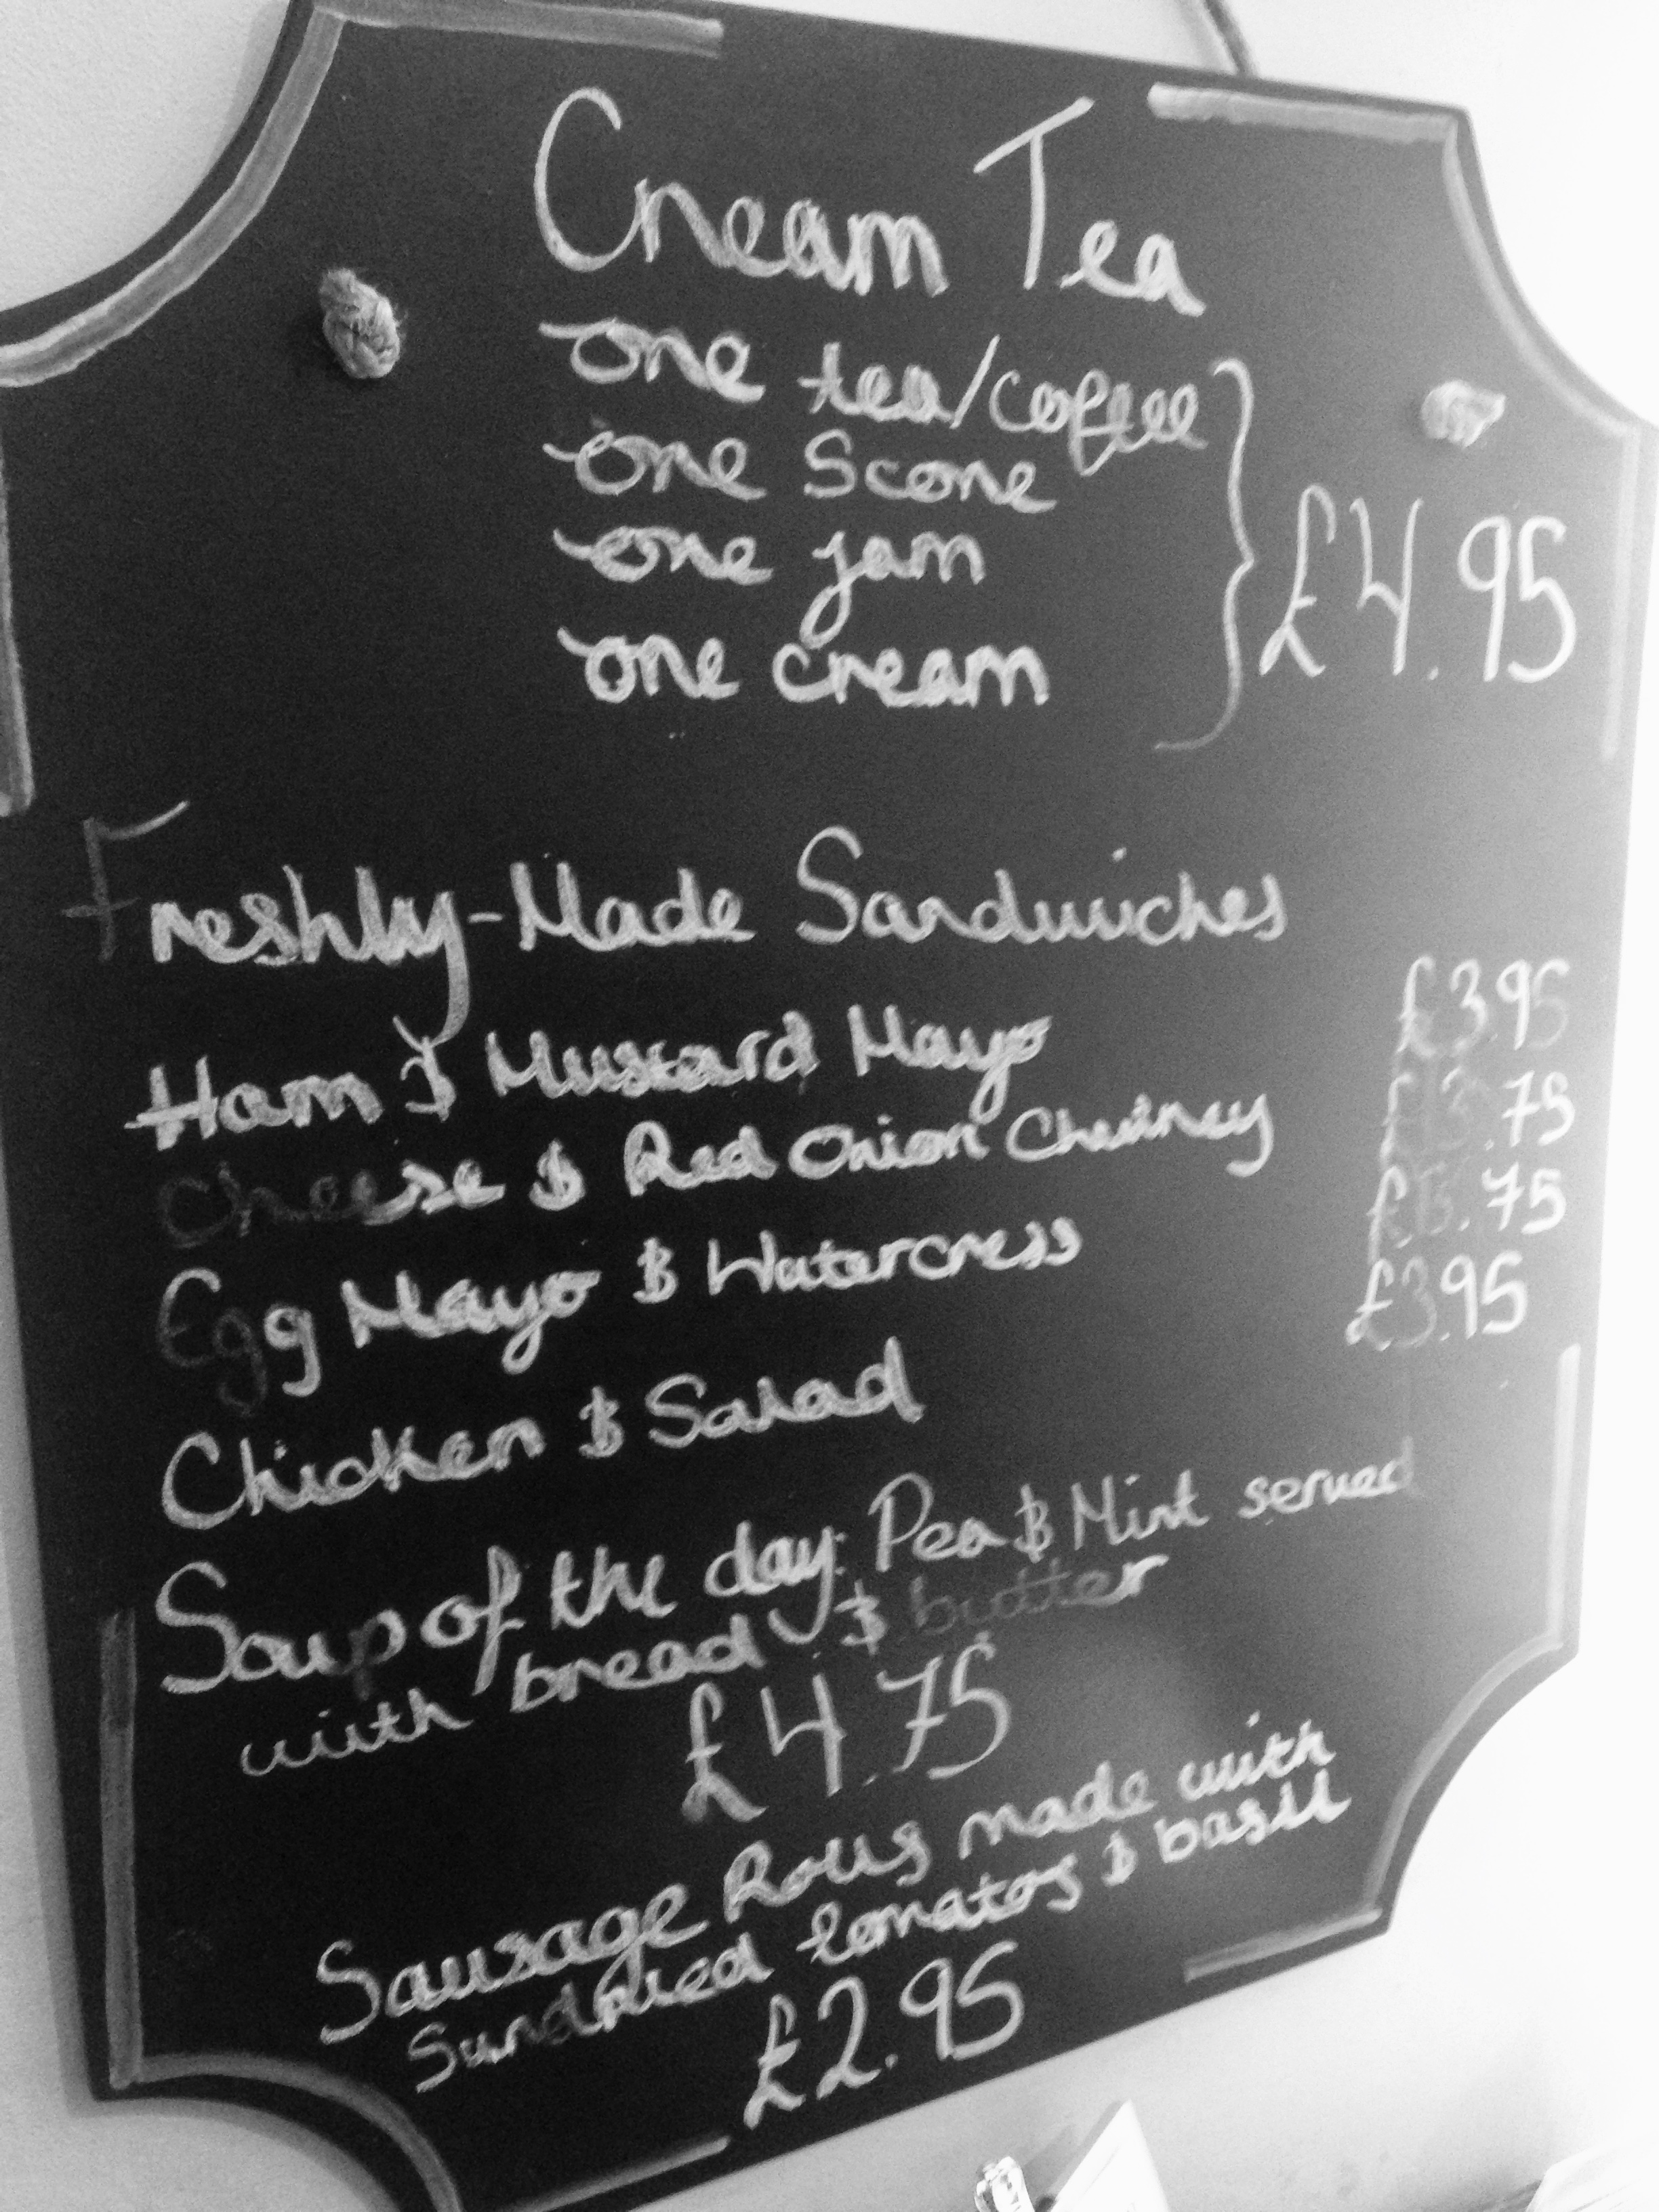 Cream Tea
one tea/coffee
one Scone
one jam
one cream
£4.95
Freshly-Made Sandwiches
Ham & Mustard Mayo £3.95
Cheese & Red Onion Chutney £3.75
Egg Mayo & Watercress .75
Chicken & Salad £3.95
Soup of the day: Pea & Mint served
with bread & butter
£4.75
Sausage Rolls made with
Sundried tomatos & basil
£2.95